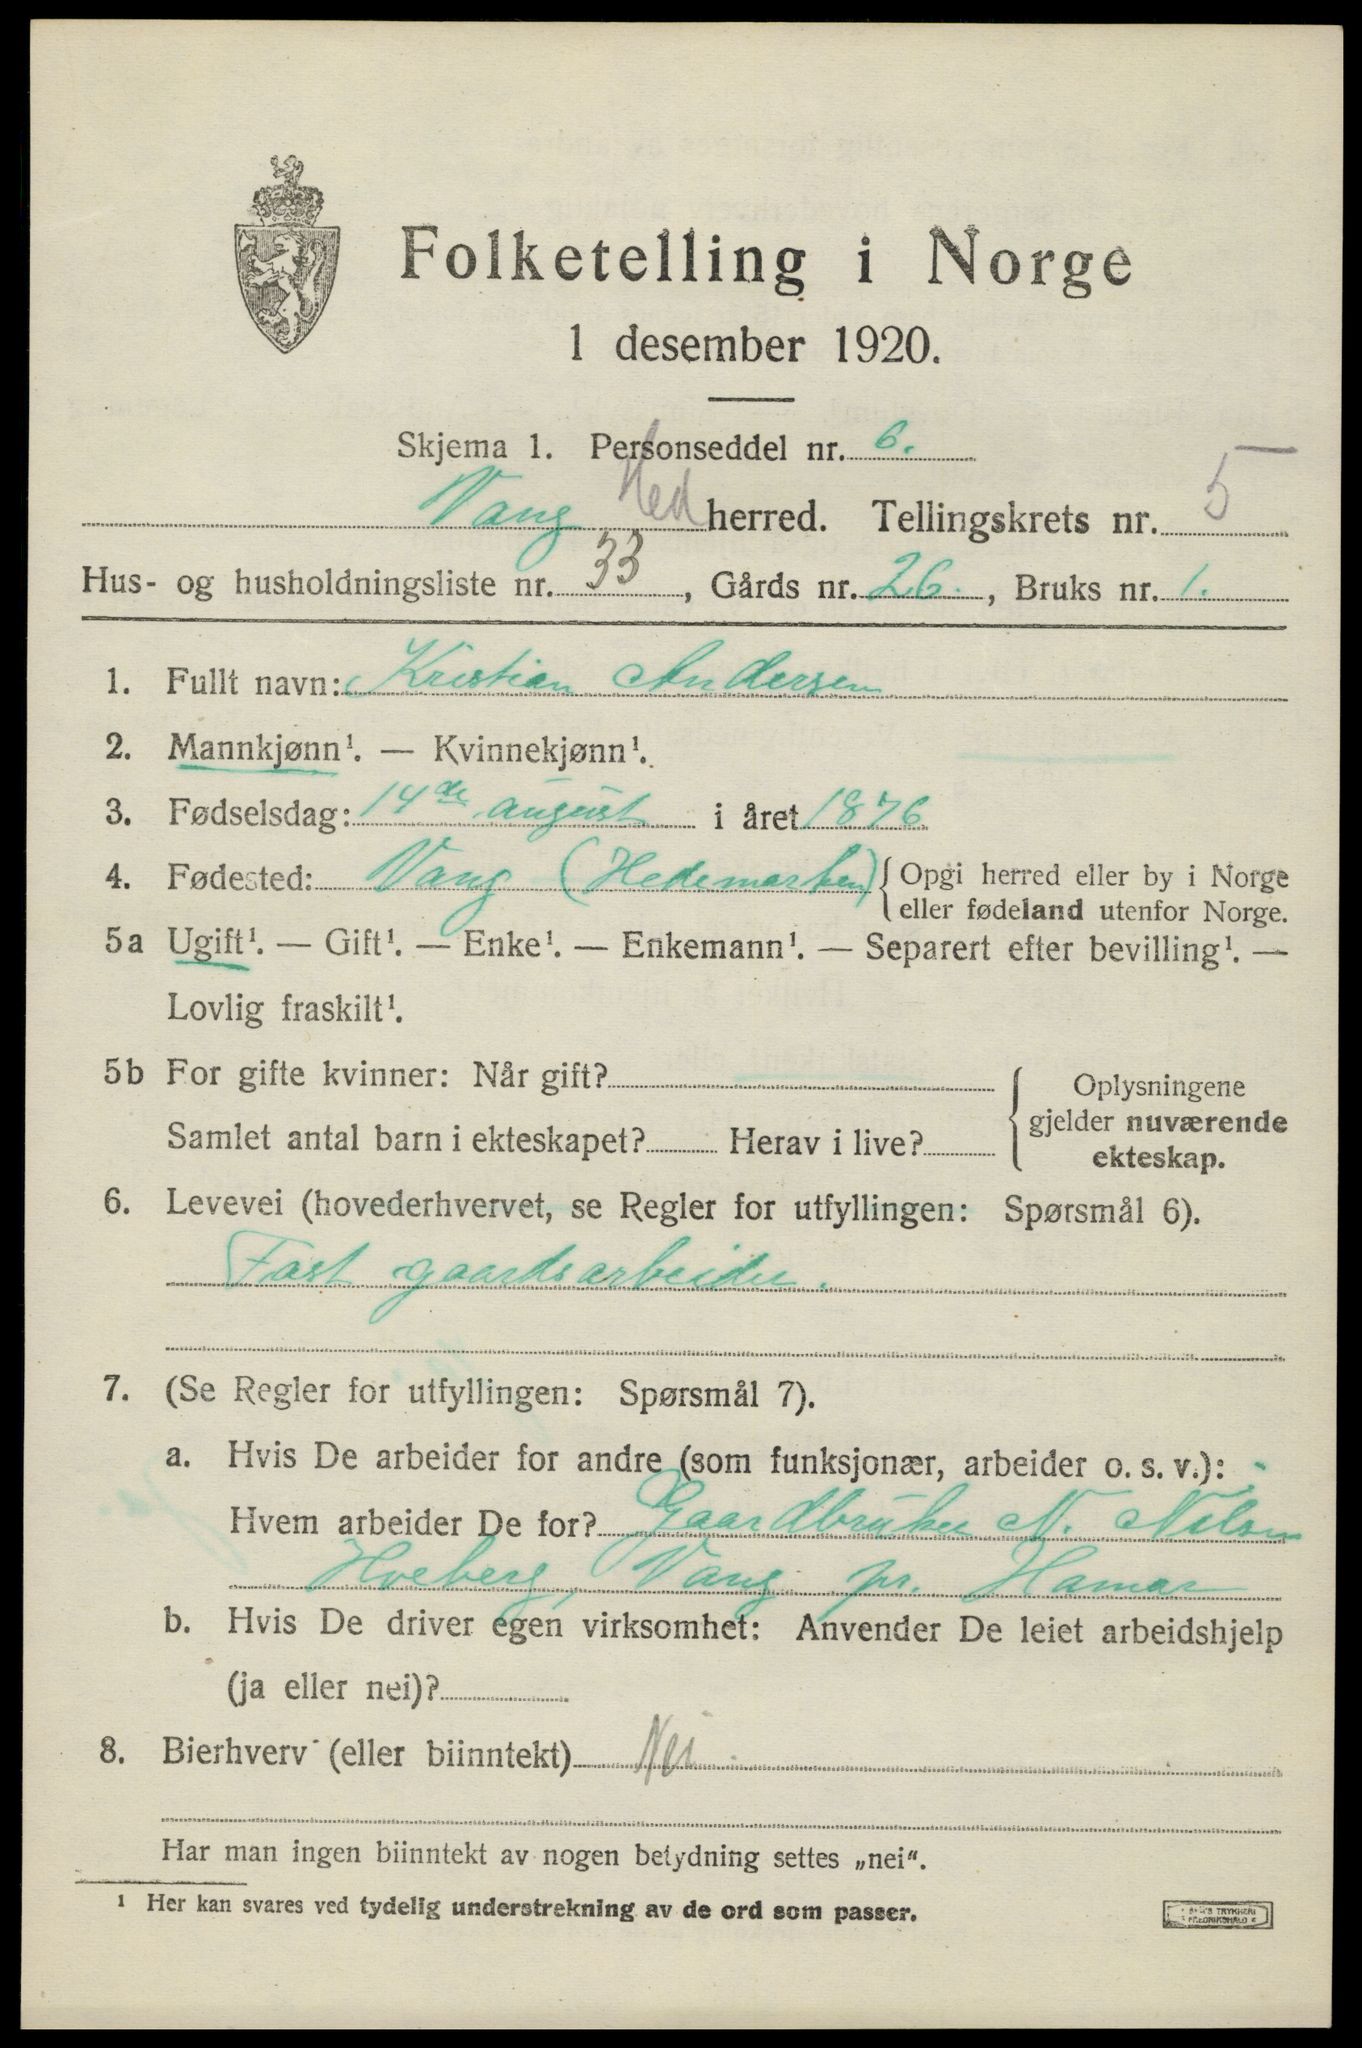 Folketelling i Norge
1 desember 1920.
Skjema 1. Personseddel nr. 6.
Vang Hed herred. Tellingskrets nr. 5
Hus- og husholdningsliste nr. 33, Gårds nr. 26., Bruks nr. 1.
1. Fullt navn: Kristian Andersen
2. Mannkjønn¹. — Kvinnekjønn¹.
3. Fødselsdag: 14de august i året 1876
4. Fødested: Vang (Hedemarken) { Opgi herred eller by i Norge
eller fødeland utenfor Norge.
5a Ugift¹. — Gift¹. — Enke¹. — Enkemann¹. — Separert efter bevilling¹. —
Lovlig fraskilt¹.
5b For gifte kvinner: Når gift? { Oplysningene
gjelder nuværende
Samlet antal barn i ekteskapet? Herav i live? ekteskap.
6. Levevei (hovederhvervet, se Regler for utfyllingen: Spørsmål 6).
Fast gaardsarbeider.
7. (Se Regler for utfyllingen: Spørsmål 7).
a. Hvis De arbeider for andre (som funksjonær, arbeider o. s. v.):
Hvem arbeider De for? Gaardbruker N. Nilsen
Hveberg, Vang pr. Hamar
b. Hvis De driver egen virksomhet: Anvender De leiet arbeidshjelp
(ja eller nei)?
8. Bierhverv (eller biinntekt) Nei
Har man ingen biinntekt av nogen betydning settes „nei“.
¹ Her kan svares ved tydelig understrekning av de ord som passer.
TRYKKERI
FREDRIKSHALD